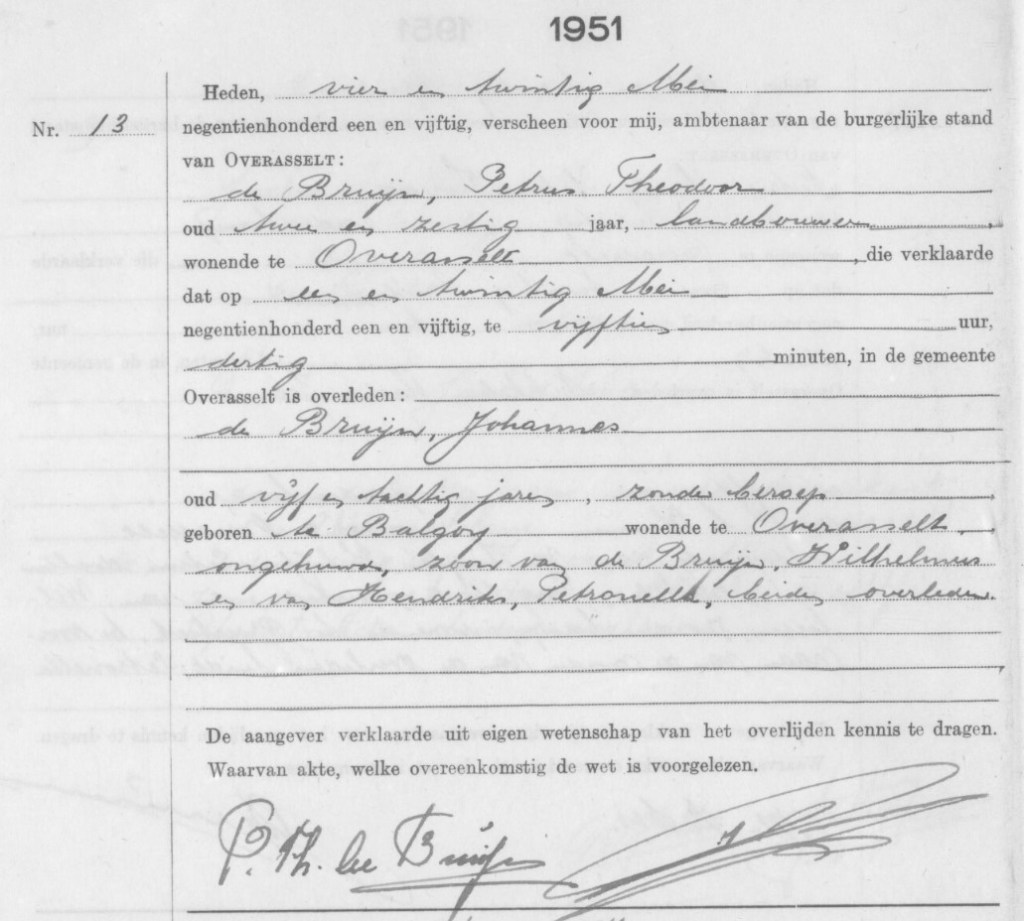 1951
Heden, vier en twintig Mei
Nr. 13
negentienhonderd een en vijftig, verscheen voor mij, ambtenaar van de burgerlijke stand
van OVERASSELT:
de Bruijn, Petrus Theodoor
oud twee en zestig jaar, landbouwer,
wonende te Overasselt, die verklaarde
dat op een en twintig Mei
negentienhonderd een en vijftig, te vijftien uur,
dertig minuten, in de gemeente
Overasselt is overleden:
de Bruijn, Johannes
oud vijf en tachtig jaren, zonder beroep,
geboren te Balgoy wonende te Overasselt,
ongehuwd, zoon van de Bruijn, Wilhelmus
en van Hendriks, Petronella, beiden overleden.
De aangever verklaarde uit eigen wetenschap van het overlijden kennis te dragen.
Waarvan akte, welke overeenkomstig de wet is voorgelezen.
P. Th. de Bruijn